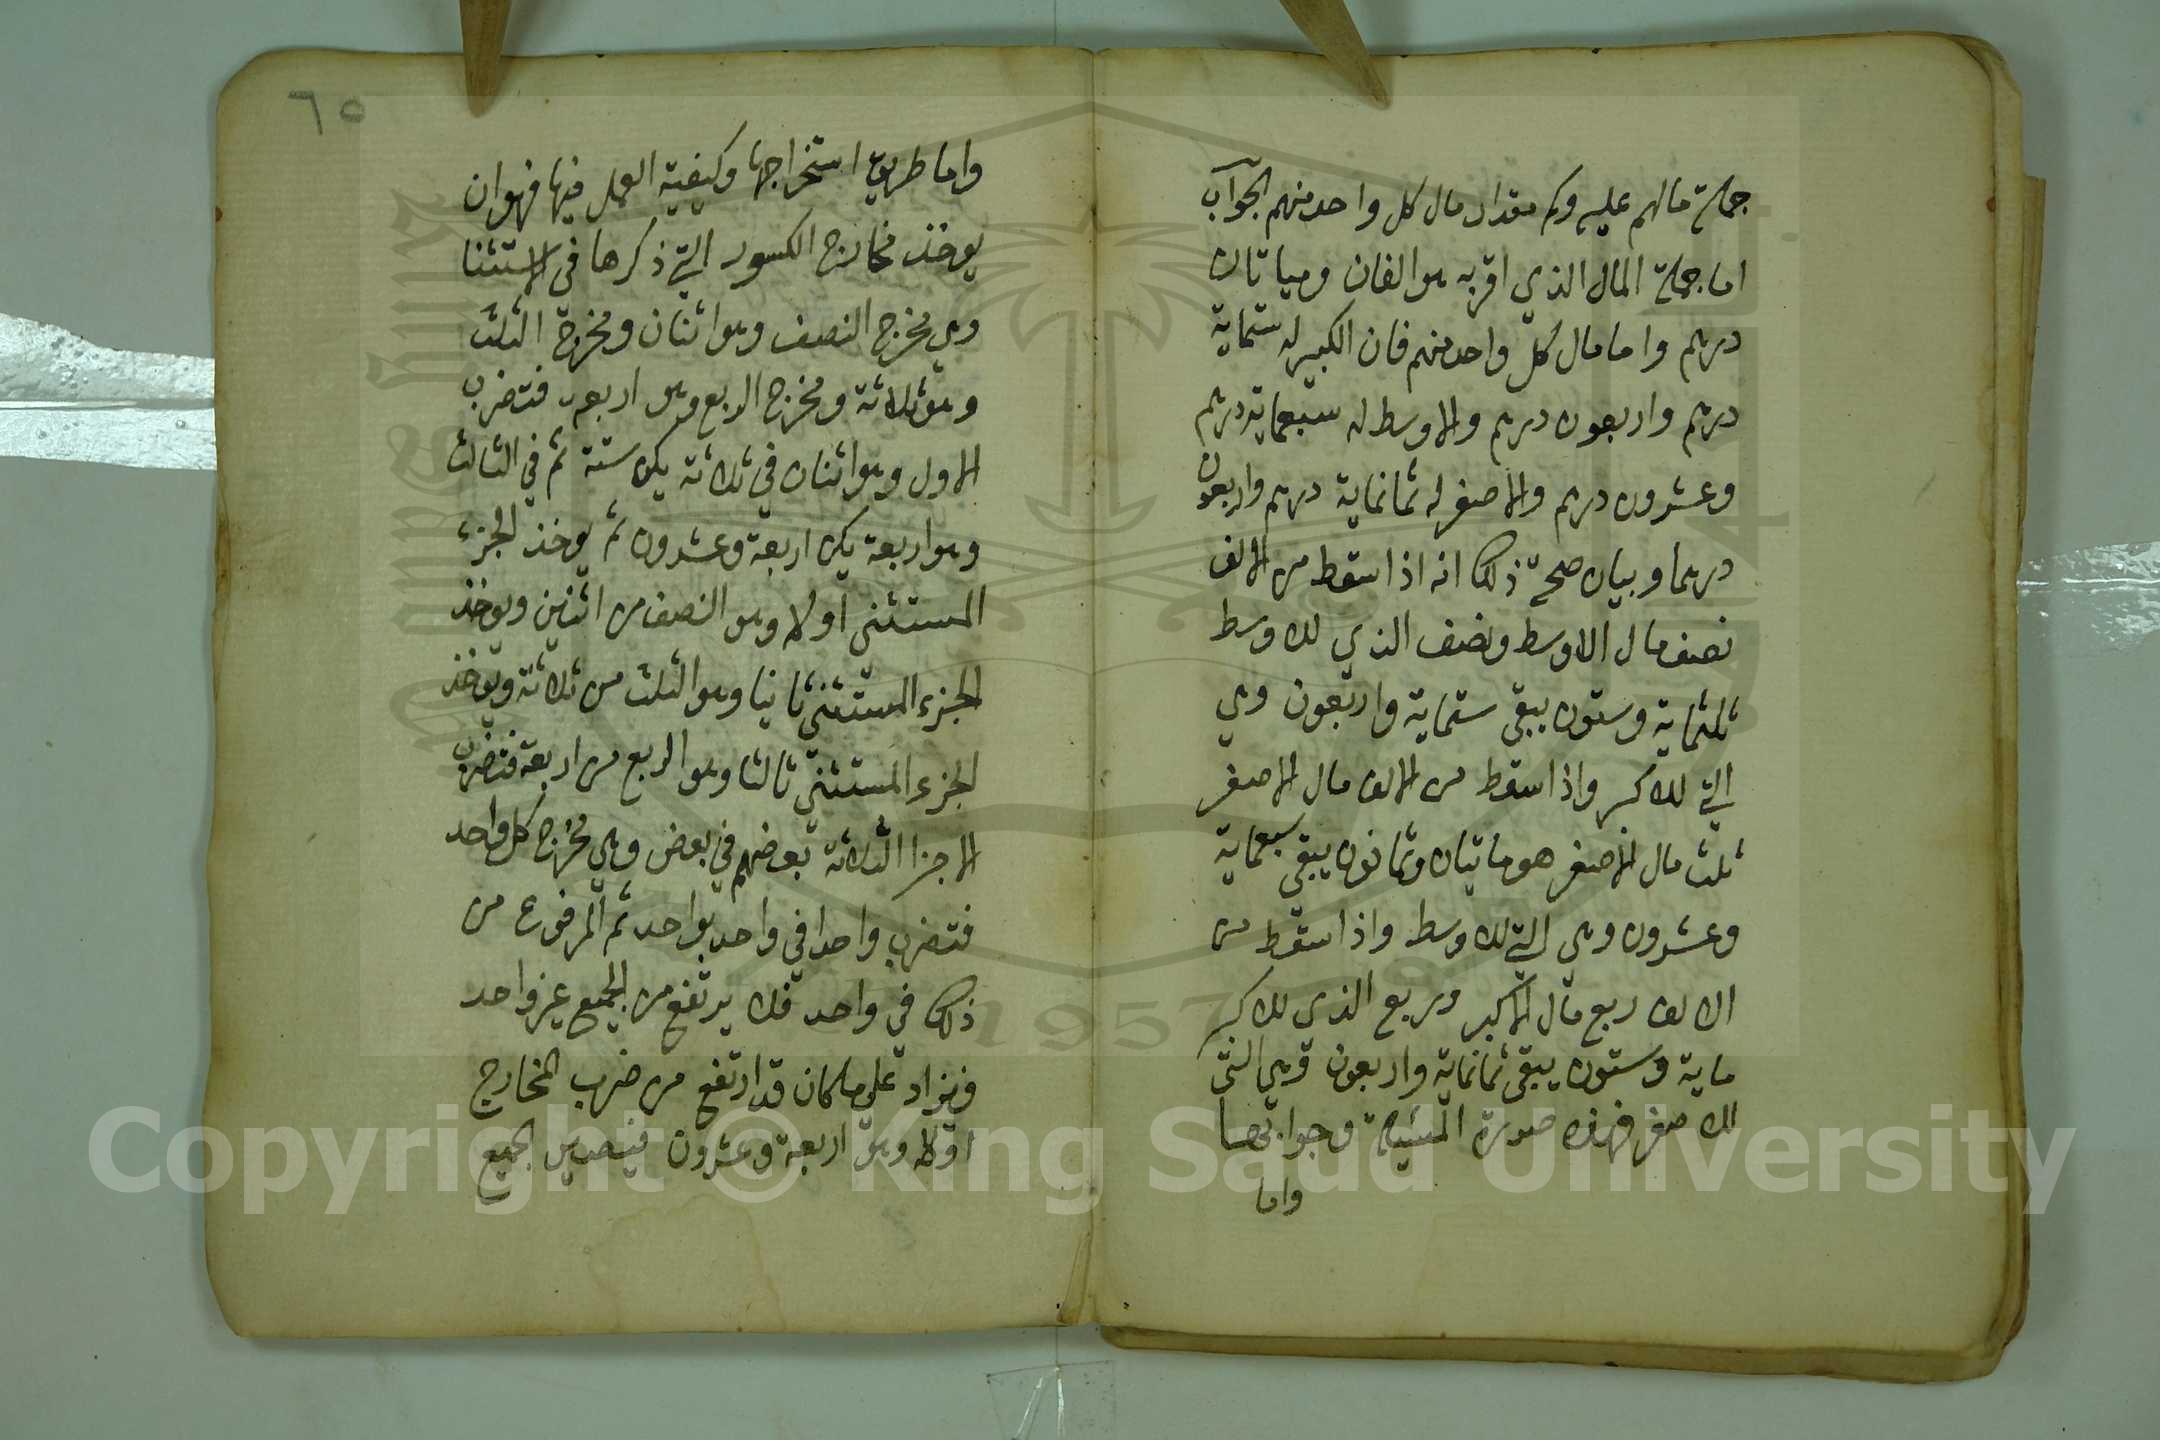 جملة مالهم عليه وكم مقدار مال كل واحد منهم الجواب
اما جملة المال الذي اقر به هو الفان وميا تان
درهم واما مال كل واحد منهم فان الكبير له ستماية
درهم واربعون درهم والاوسط له سبعماية درهم
وعشرون درهم والاصغر له ثمانماية درهم واربعون
درهما وبيان صحة ذلك انه اذا سقط من الالف
نصف مال الاوسط ونصف الذي للاوسط
ثلثماية وستون يبقى ستماية واربعون وهي
التي للاكبر واذا سقط من الالف مال الاصغر
ثلث مال الاصغر هو ماتيان وثمانون يبقى سبعماية
وعشرون وهي التي للاوسط واذا سقط من
الالف ربع مال الاكبر وربع الذي للاكبر
ماية وستون يبقى ثمانماية واربعون وهي التي
للاصغر فهذه صورة المسئلة وجوابها
واما
٦٥
واما طريق استخراجها وكيفية العمل فيها فهو ان
يوخذ مخارج الكسور التي ذكرها في الاستثنا
وهي مخرج النصف وهو اثنان ومخرج الثلث
وهو ثلاثة ومخرج الربع وهو اربعه فتضرب
الاول وهو اثنان في ثلاثة يكن ستة ثم في الثالث
وهو اربعة يكن اربعة وعشرون ثم يوخذ الجزء
المستثنى اولا وهو النصف من اثنين ويوخذ
الجزء المستثنى ثانيا وهو الثلث من ثلاثة ويوخذ
الجزء المستثنى ثالثا وهو الربع من اربعة فتضرب
الاجزا الثلاثة بعضهم في بعض وهي مخرج كل واحد
فتضرب واحدا في واحد بواحد ثم المرفوع من
ذلك في واحد فلا يرتفع من الجميع غير واحد
فيزاد على ما كان قد ارتفع من ضرب المخارج
اولا وهو اربعة وعشرون فيصير الجميع
1957
Copyright © King Saud University